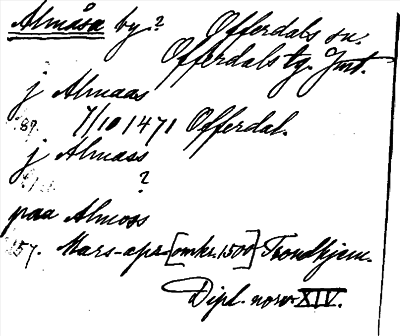 Almåsa by? Offerdals sn.
Offerdals tg. Jmt.
j Almaas
89. 7/10 1471 Offerdal.
j Almass
?
paa Almoss
157. Mars-apr [omkr. 1500] Trondhjem.
Dipl. norv XIV.